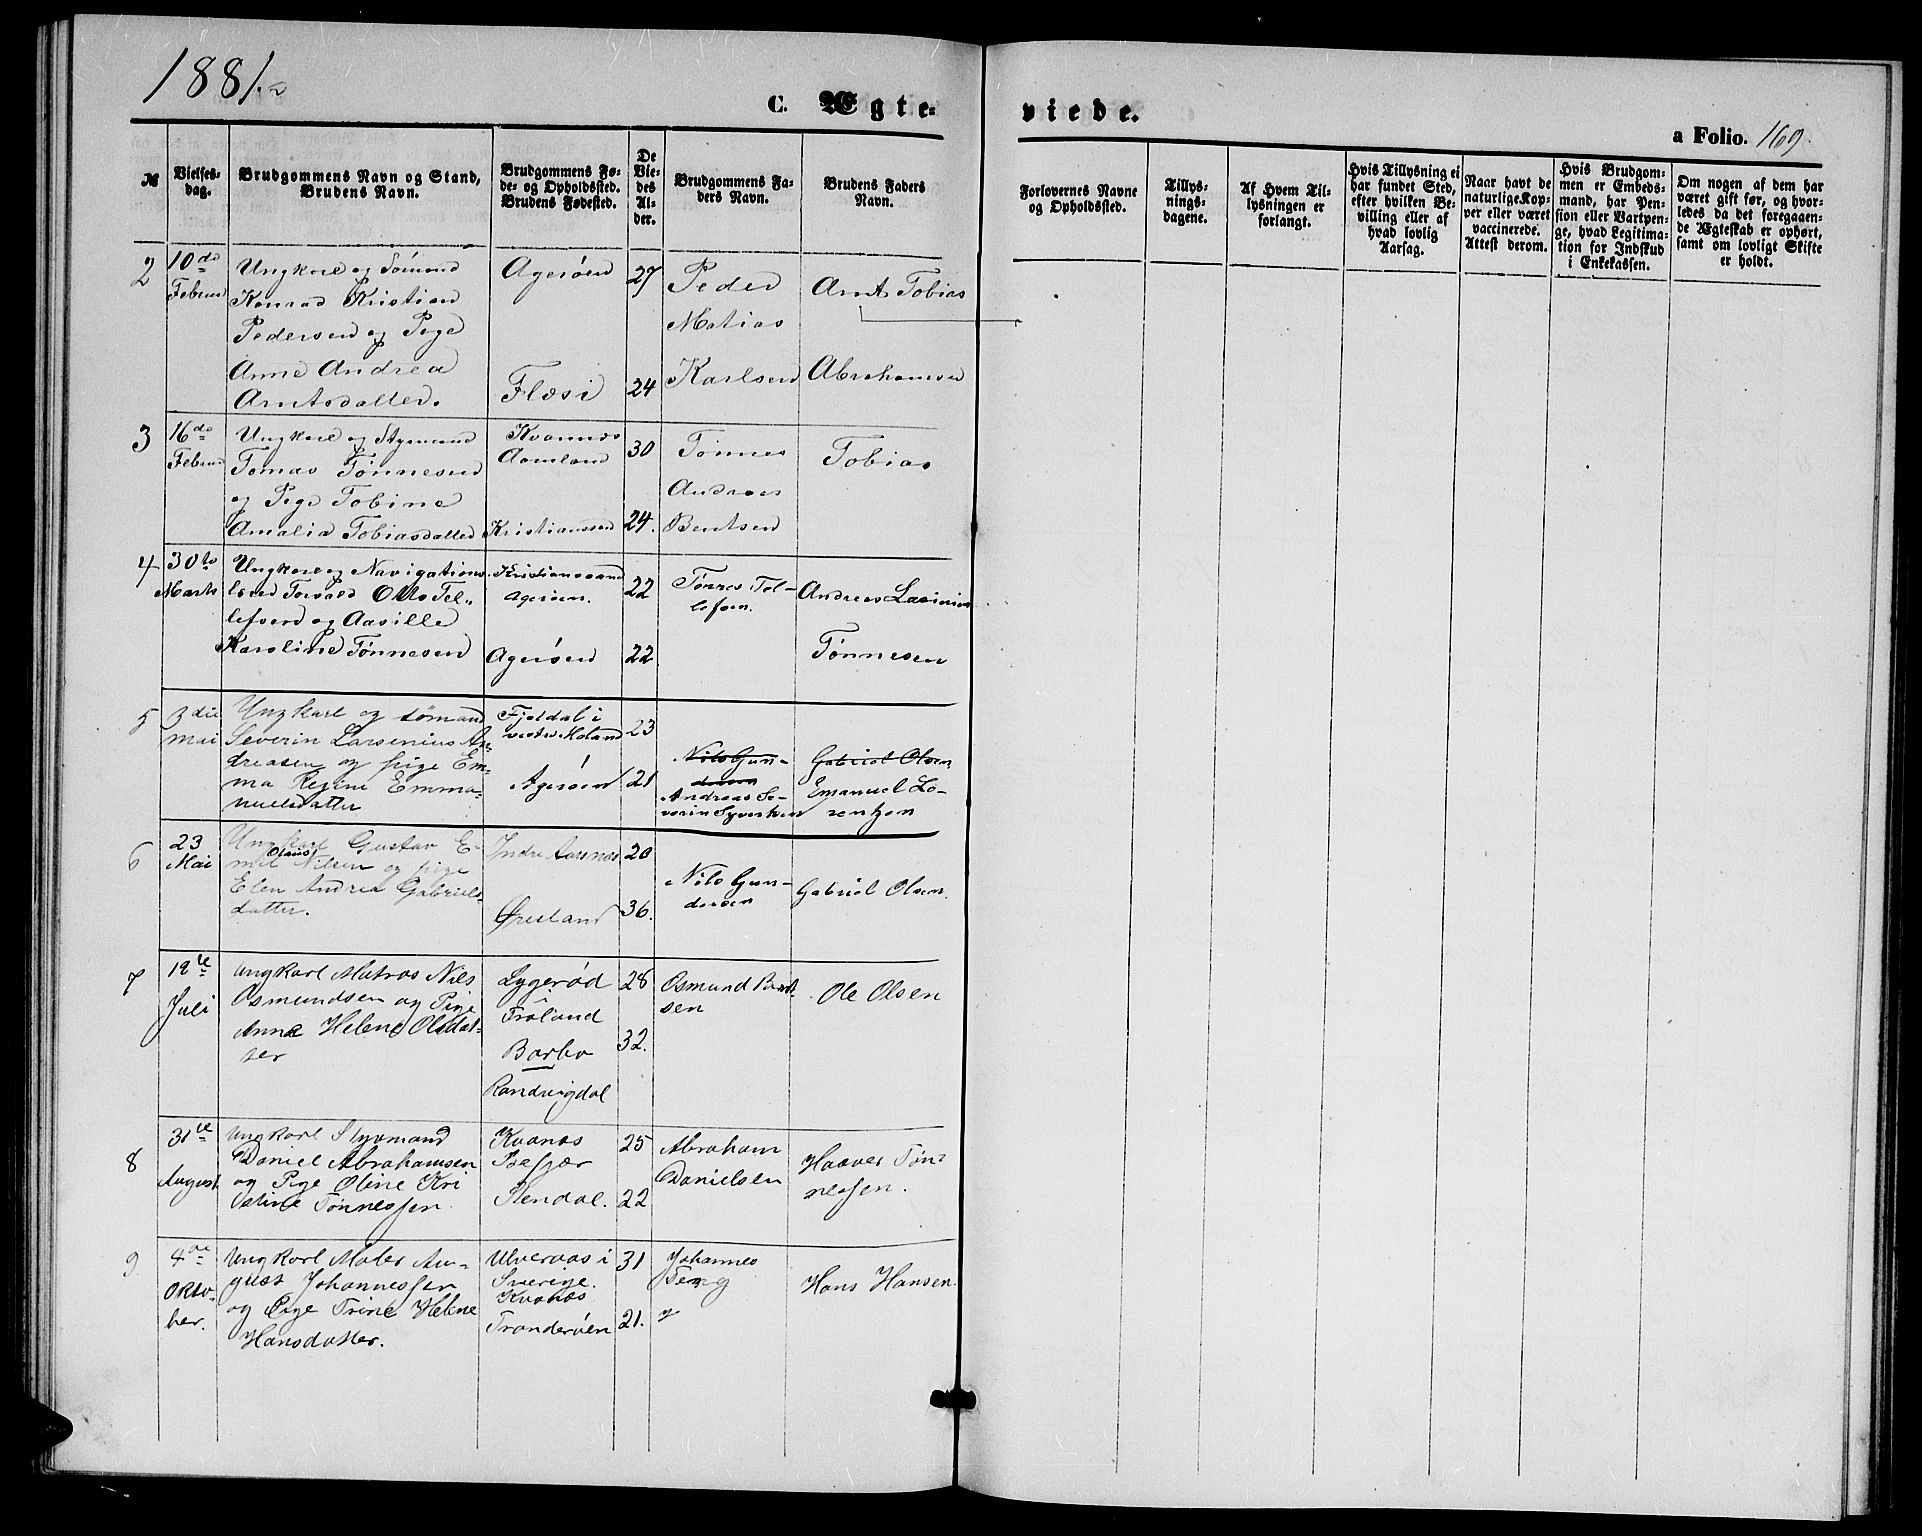 1881.
C. Ægte-
viede.
a Folio. 169.
№
Vielses-
dag.
Brudgommens Navn og Stand,
Brudens Navn.
Brudgommens Fø-
de- og Opholdssted.
Brudens Fødested.
De
Vie-
des
Al-
der.
Brudgommens Fa-
ders Navn.
Brudens Faders
Navn.
Forlovernes Navne
og Opholdssted.
Tillys-
nings-
dagene.
Af Hvem Til-
lysningen er
forlangt.
Hvis Tillysning ei
har fundet Sted,
efter hvilken Be-
villing eller af
hvad lovlig
Aarsag.
Naar havt de
naturlige Kop-
per eller været
vaccinerede.
Attest derom.
Hvis Brudgom-
men er Embeds-
mand, har Pen-
sion eller Vartpen-
ge, hvad Legitima-
tion for Indskud
i Enkekassen.
Om nogen af dem har
været gift før, og hvor-
ledes da det foregaaen-
de Ægteskab er ophørt,
samt om lovligt Skifte
er holdt.
2
10de
Februar
Ungkarl og Sømand
Konrad Kristian
Pedersen og Pige
Anne Andrea
Arntsdatter.
Agerøen
Flosi
27
24
Peder
Matias
Karlsen
Arnt Tobias
Abrahamsen
3
16de
Februar
Ungkarl og Styrmand
Tomas Tønnesen
og Pige Tobine
Amalia Tobiasdatter
Kvannes
Aamland
Kristianssand
30
24.
Tønnes
Andreas
Bentsen
Tobias
4
30te
Marts
Ungkarl og Navigations-
lærer Torvald Otto Tel-
lefsen og Aasille
Karoline Tønnesen
Kristianssand
Agerøen.
Agerøen
22
22
Tønnes Tel-
lefsen.
Andreas Lavinius
Tønnesen
5
3die
mai
Ungkarl og sømand
Severin Larsenius An-
dreasen og pige Em-
ma Regine Emma-
nuelsdatter
Fjeldal i
vestre Moland
Agerøen
23
21
Nils Gun-
dersen
Andreas Se-
verin Syvertsen
Gabriel Olsen
Emanuel Lo-
rentzen
6
23
Mai
Ungkarl Gustav E-
mil Olaus Nilsen og pige
Elen Andrea Gabriels-
datter.
Indre Aarsnes
Øresland
20
36.
Nils Gun-
dersen
Gabriel Olsen.
7
12te
Juli
Ungkarl Matros Niels
Osmundsen og Pige
Anne Helene Olsdat-
ter
Lygerød
Frøland
Barbo
Randvigdal
28
32.
Osmund Bent-
sen
Ole Olsen
8
31te
August
Ungkarl Styrmand
Daniel Abrahamsen
og Pige Oline Kri
stine Tønnessen
Kvanes
Stendal.
25
22
Abraham
Danielsen
Haaver Tøn-
nessen.
9
4de
Okto-
ber.
Ungkarl Maler Au-
gust Johannessen
og Pige Trine Helene
Hansdatter.
Ulveraas i
Sverige.
Kvanes
Tranderøen
31
21.
Johannes
Hans Hansen